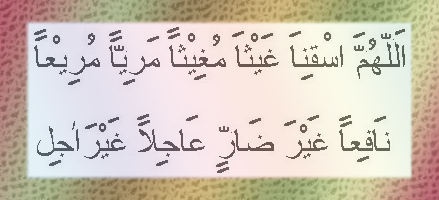 اَللّٰهُمَّ اسْقِنَا غَيْثاً مُغِيْثاً مَرِيّاً مُرِيْعاً
نَافِعاً غَيْرَ ضَارٍّ عَاجِلاً غَيْرَ أجِلِ